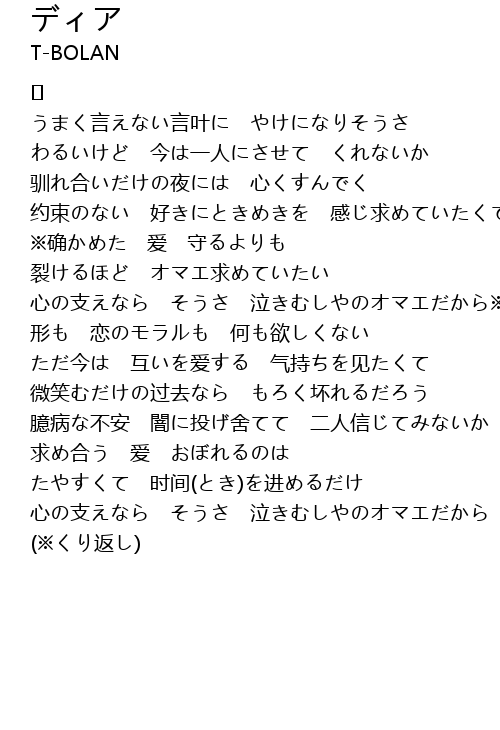 ディア
T-BOLAN
[]
うまく言えない言叶に　やけになりそうさ
わるいけど　今は一人にさせて　くれないか
驯れ合いだけの夜には　心くすんでく
约束のない　好きにときめきを　感じ求めていたくて
※确かめた　爱　守るよりも
裂けるほど　オマエ求めていたい
心の支えなら　そうさ　泣きむしやのオマエだから※
形も　恋のモラルも　何も欲しくない
ただ今は　互いを爱する　气持ちを见たくて
微笑むだけの过去なら　もろく坏れるだろう
臆病な不安　闇に投げ舍てて　二人信じてみないか
求め合う　爱　おぼれるのは
たやすくて　时间(とき)を进めるだけ
心の支えなら　そうさ　泣きむしやのオマエだから
(※くり返し)